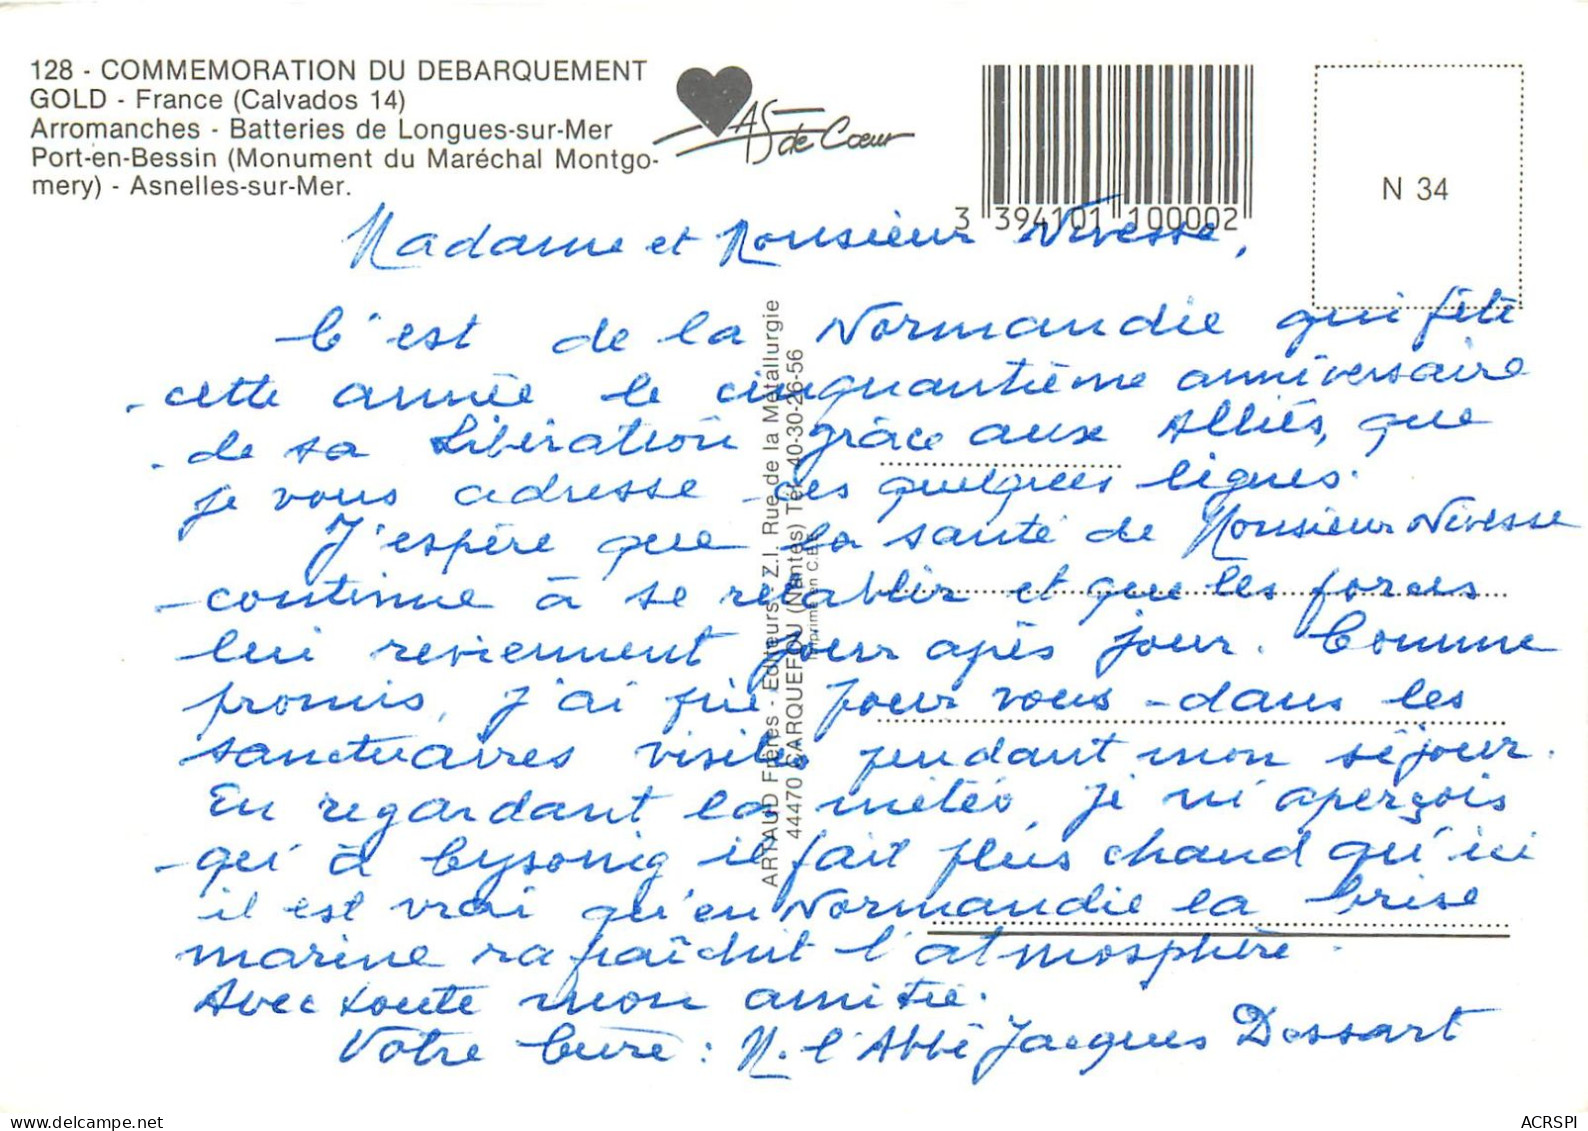 128 - COMMEMORATION DU DEBARQUEMENT
GOLD - France (Calvados 14)
Arromanches - Batteries de Longues-sur-Mer
Port-en-Bessin (Monument du Maréchal Montgo-
mery) - Asnelles-sur-Mer.
AS de Cœur
3 394101 100002
N 34
Madame et Monsieur Nivesse,
C'est de la Normandie qui fête
cette année le cinquantième anniversaire
de sa Libération grâce aux Alliés, que
je vous adresse ces quelques lignes.
J'espère que la santé de Monsieur Nivesse
continue à se rétablir et que les forces
lui reviennent jour après jour. Comme
promis, j'ai prié pour vous dans les
sanctuaires visités pendant mon séjour.
En regardant la météo, je m'aperçois
qu'à Cysoing il fait plus chaud qu'ici
il est vrai qu'en Normandie la brise
marine rafraîchit l'atmosphère.
Avec toute mon amitié.
Votre Curé : M. l'Abbé Jacques Dessart
ARTAUD Frères - Editeurs - Z.I. Rue de la Métallurgie
44470 CARQUEFOU (Nantes) Tél. 40-30-26-56
Imprimé en C.E.E.
ACRSPI